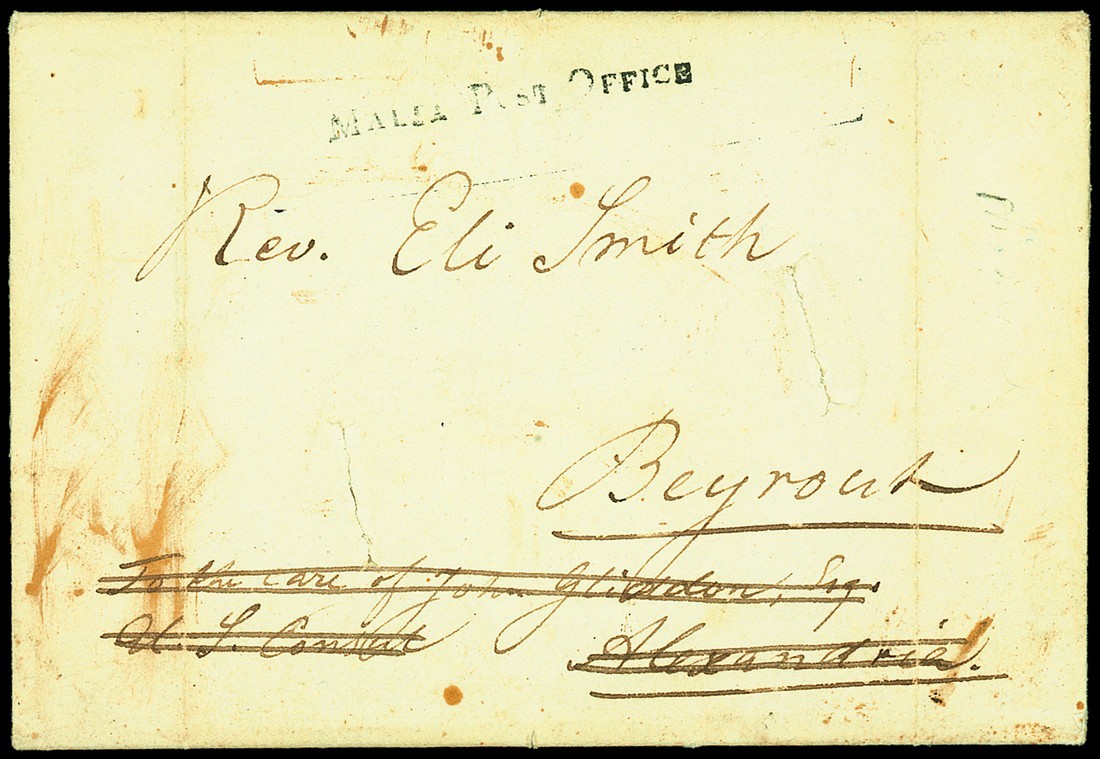 MALTA POST OFFICE
Rev. Eli Smith
Beyrout
To the care of John Gliddon, Esq.
U. S. Consul
Alexandria.